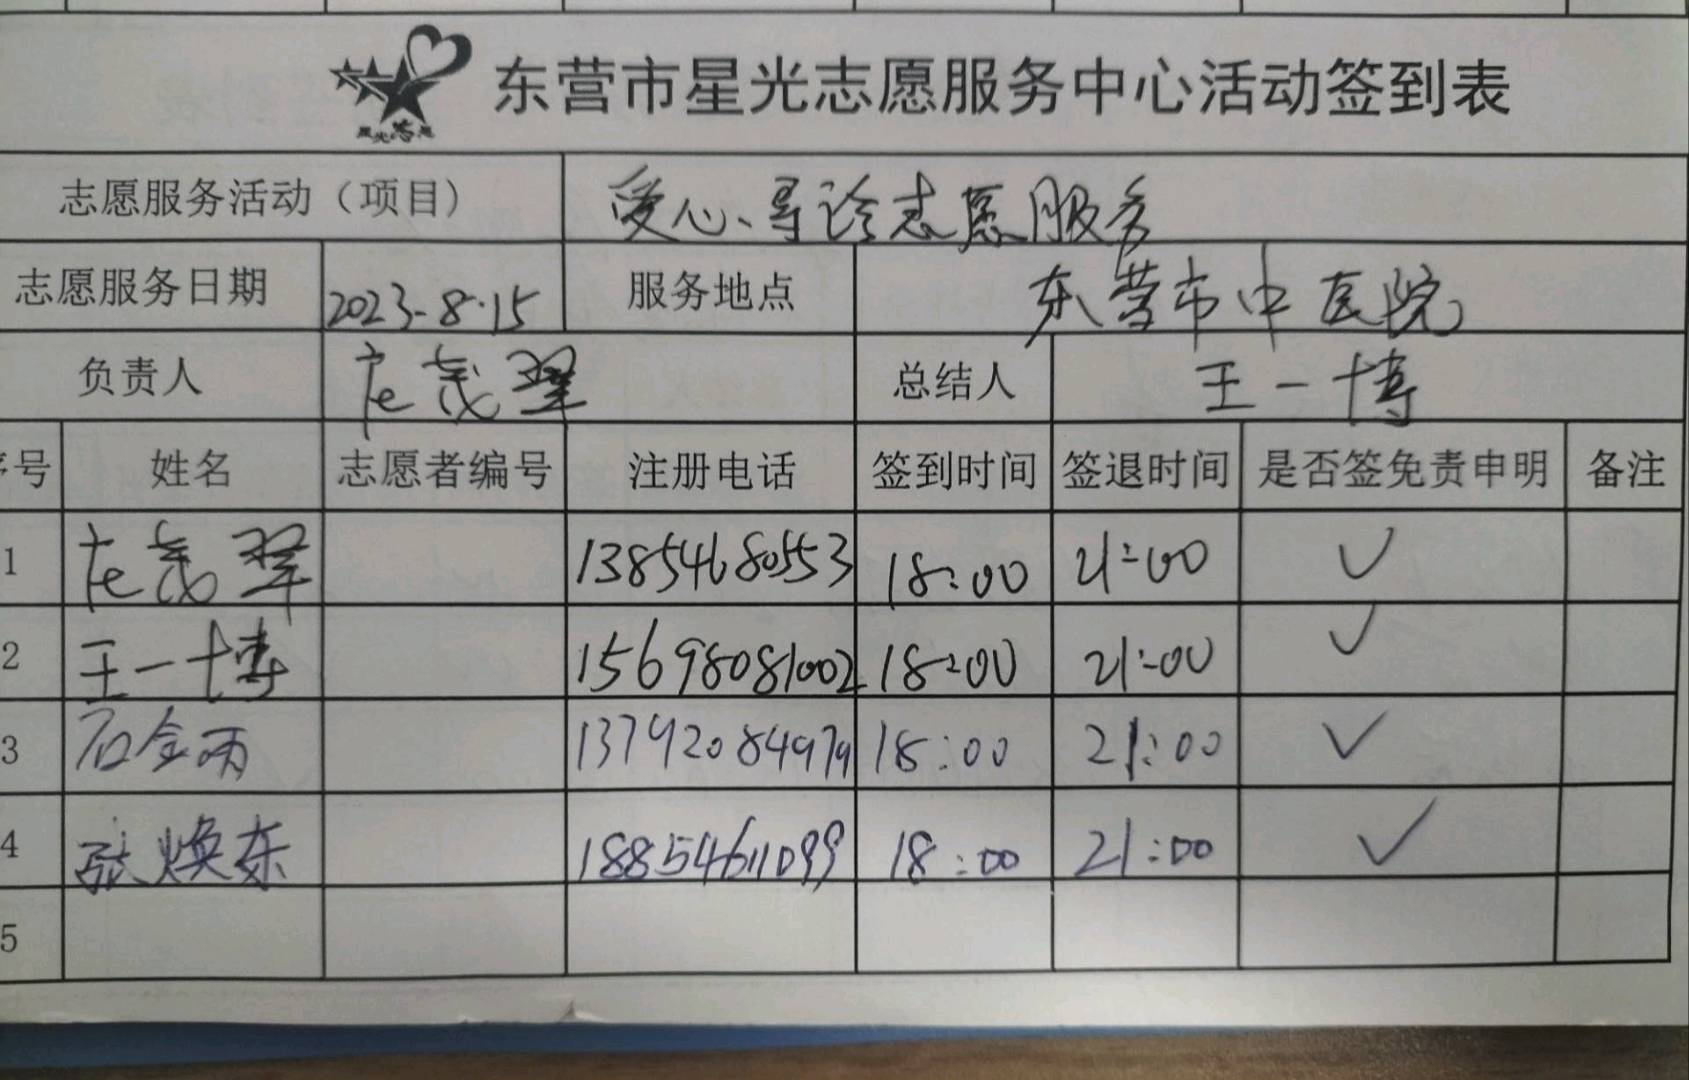 星光志愿
东营市星光志愿服务中心活动签到表
志愿服务活动（项目） 爱心导诊志愿服务
志愿服务日期 2023-8.15 服务地点 东营市中医院
负责人 茂翠 总结人 王一博
序号 姓名 志愿者编号 注册电话 签到时间 签退时间 是否签免责申明 备注
1 茂翠 13854680553 18:00 21:00 ✓
2 王一博 15698081002 18:00 21:00 ✓
3 石金雨 13792084979 18:00 21:00 ✓
4 张焕东 18854611099 18:00 21:00 ✓
5